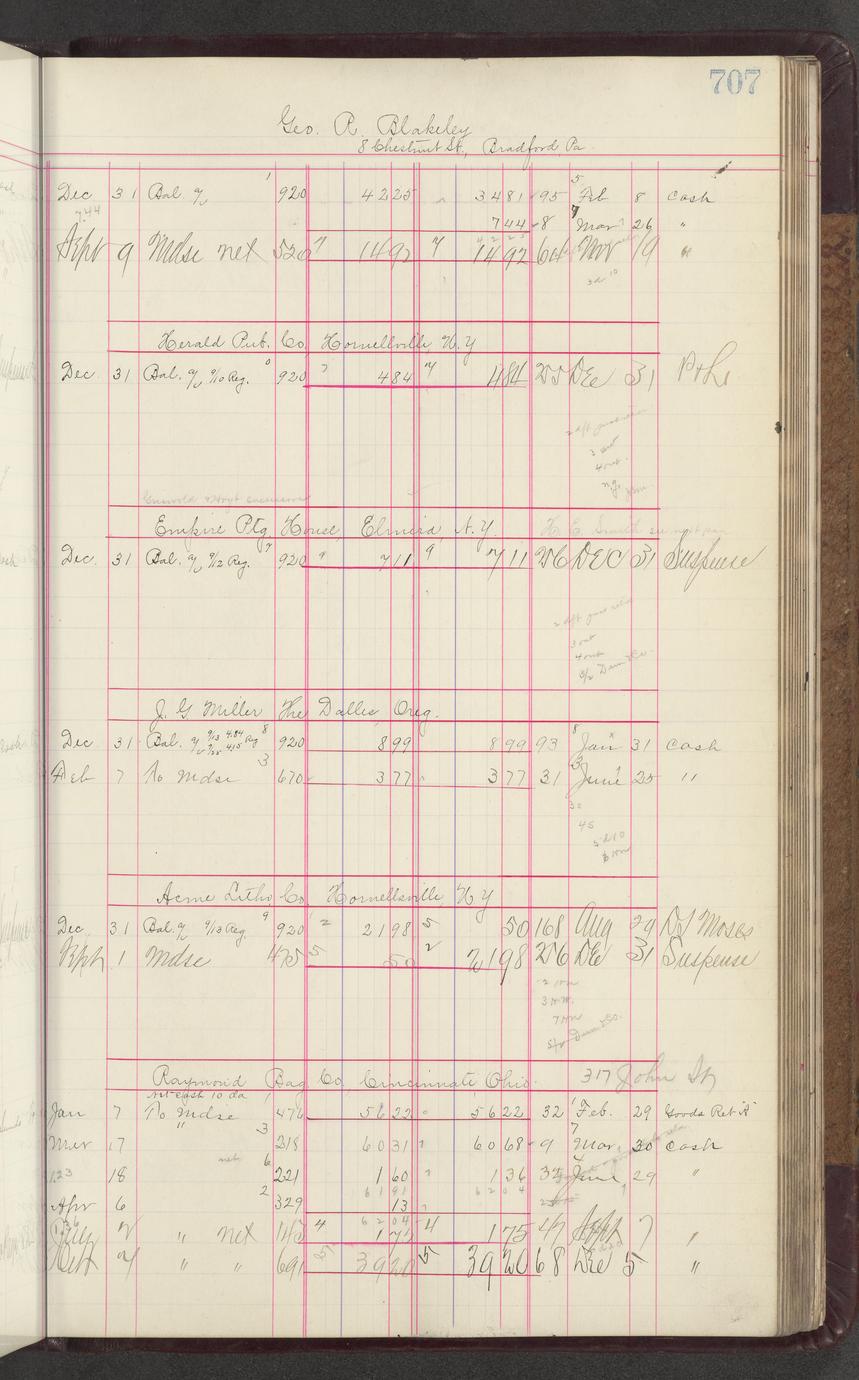 707
Geo. R. Blakeley
8 Chestnut St., Bradford Pa.
Dec 31 Bal. 920 4225 3481 95 Feb 8 cash
744 744 8 Mar 26 "
Sept 9 Mdse net 520 1492 1492 64 Nov 19 "
Herald Pub. Co. Hornellsville, N.Y
Dec 31 Bal. 9/10 Reg. 920 484 484 Dec 31 P+L
2 dft
3
4
Empire Ptg. House, Elmira N.Y.
Dec. 31 Bal. 9/12 Reg. 920 711 711 256 Dec 31 Suspense
2 dft
3 out
4 out
J. G Miller The Dalles, Oreg.
Dec 31 Bal. 9/13 4.84 Reg 920 899 899 93 Jan 31 cash
Feb 7 To Mdse 670 377 377 31 June 25 "
30
45
Acme Litho. Co. Hornellsville N.Y
Dec 31 Bal. 9/13 Reg. 920 2198 50 168 Aug 29 Moses
Sept 1 Mdse 475 50 2198 256 Dec 31 Suspense
Raymond Bag Co. Cincinnati Ohio. 317 John St
net cash 10 da
Jan 7 To Mdse 476 5622 5622 32 Feb. 29 Goods Ret'd
Mar 17 " 218 6031 6068 9 Mar. 30 cash
123 18 net 221 160 136 June 29 "
6191 6204
Apr 6 329 13
6204
July 2 " net 175 175 47 Sept 7 "
" " 691 3920 3920 68 Dec 5 "